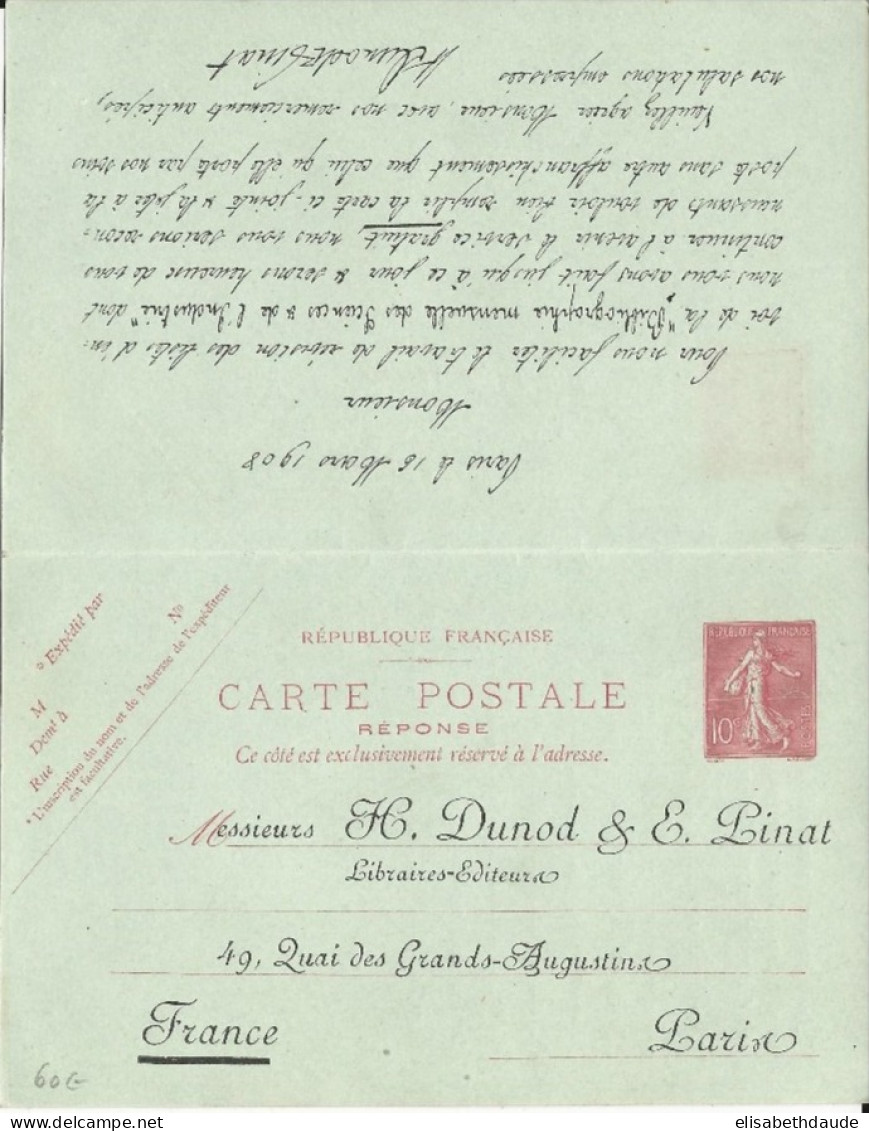 Paris le 16 Mars 1908
Monsieur
Pour nous faciliter le travail de révision des listes d'en-
voi de la "Bibliographie mensuelle des Sciences & de l'Industrie" dont
nous vous avons fait jusqu'à ce jour & serons heureux de vous
continuer à l'avenir le service gratuit, nous vous serions recon-
naissants de vouloir bien remplir la carte ci-jointe & la jeter à la
poste sans autre affranchissement que celui qu'elle porte par nos soins
Veuillez agréer Monsieur, avec nos remerciements anticipés,
nos salutations empressées
H Dunod & E Pinat
* Expédié par
M
Demt à
Rue
No
* L'inscription du nom et de l'adresse de l'expéditeur
est facultative.
RÉPUBLIQUE FRANÇAISE
CARTE POSTALE
RÉPONSE
Ce côté est exclusivement réservé à l'adresse.
REPUBLIQUE FRANÇAISE
10c
POSTES
Messieurs H. Dunod & E. Pinat
Libraires-Editeurs
49, Quai des Grands-Augustins
France
Paris
60€
elisabethdaude